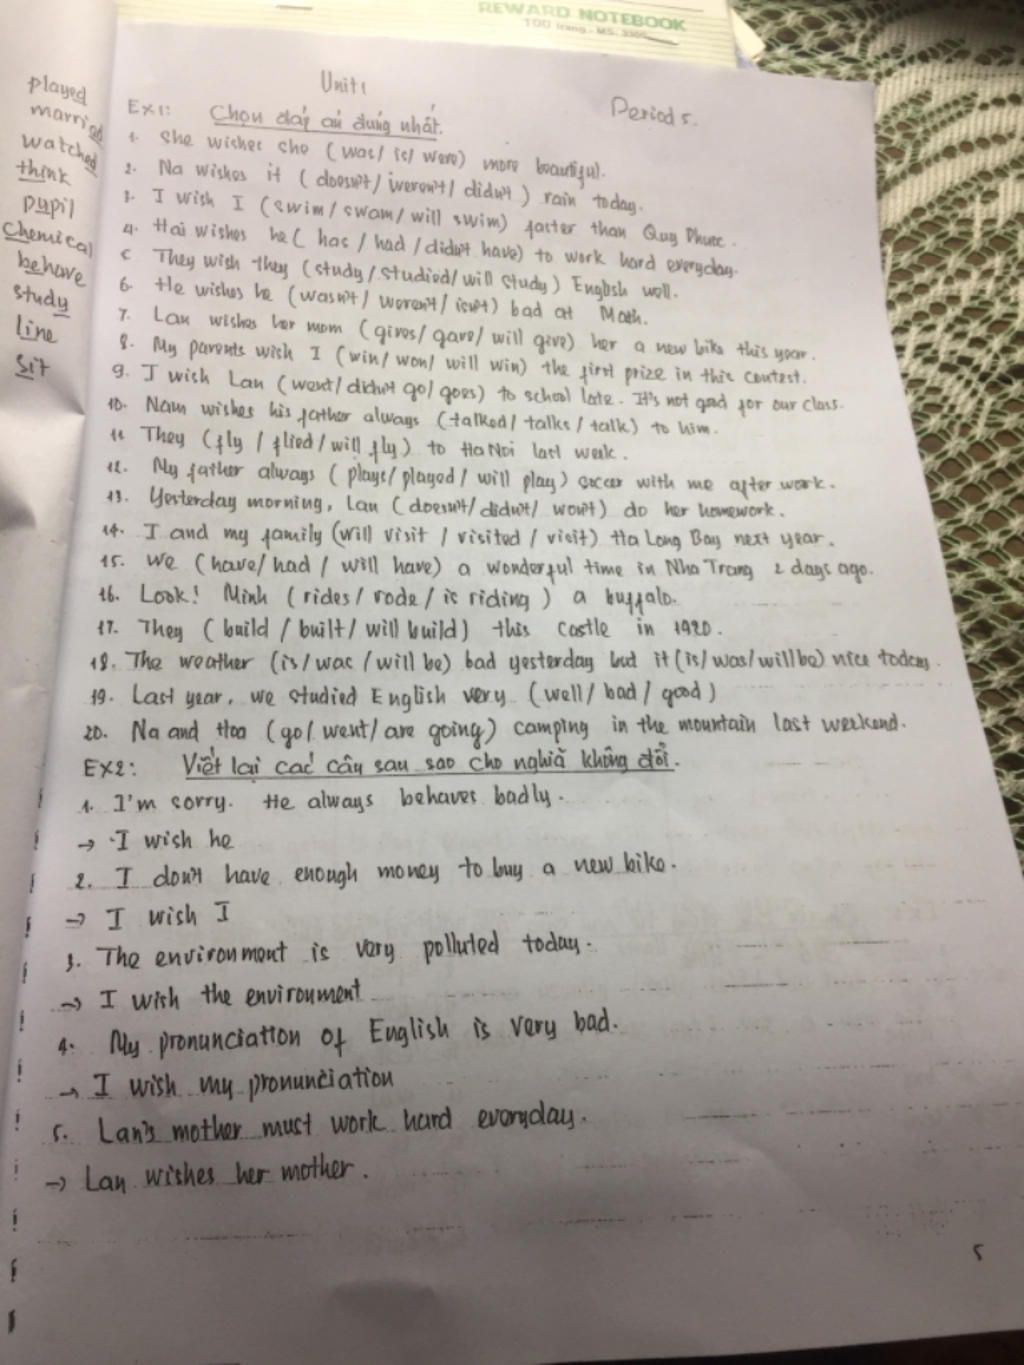 REWARD NOTEBOOK
100 trang - MS:
played
married
watched
think
pupil
chemical
behave
study
line
sit
Unit 1
Period 5.
EX1: Chọn đáp án đúng nhất.
1. She wishes she (was/ is/ were) more beautiful.
2. Na wishes it (doesn't/ weren't/ didn't) rain today.
3. I wish I (swim/ swam/ will swim) faster than Quy Phuoc.
4. Hai wishes he (has / had / didn't have) to work hard everyday.
5 They wish they (study / studied/ will study) English well.
6. He wishes he (wasn't/ weren't/ isn't) bad at Math.
7. Lan wishes her mom (gives/ gave/ will give) her a new bike this year.
8. My parents wish I (win/ won/ will win) the first prize in this contest.
9. I wish Lan (went/ didn't go/ goes) to school late. It's not good for our class.
10. Nam wishes his father always (talked/ talks / talk) to him.
11 They (fly / flied / will fly) to Ha Noi last week.
12. My father always (plays/ played / will play) soccer with me after work.
13. Yesterday morning, Lan (doesn't/ didn't/ won't) do her homework.
14. I and my family (will visit / visited / visit) Ha Long Bay next year.
15. We (have/ had / will have) a wonderful time in Nha Trang 2 days ago.
16. Look! Minh (rides / rode / is riding) a buffalo.
17. They (build / built / will build) this castle in 1920.
18. The weather (is / was / will be) bad yesterday but it (is/ was/ will be) nice today.
19. Last year, we studied English very (well/ bad / good)
20. Na and Hoa (go/ went/ are going) camping in the mountain last weekend.
EX2: Viết lại các câu sau sao cho nghiã không đổi.
1. I'm sorry. He always behaves badly.
→ I wish he
2. I don't have enough money to buy a new bike.
→ I wish I
3. The environment is very polluted today.
→ I wish the environment
4. My pronunciation of English is very bad.
→ I wish my pronunciation
5. Lan's mother must work hard everyday.
→ Lan wishes her mother.
5